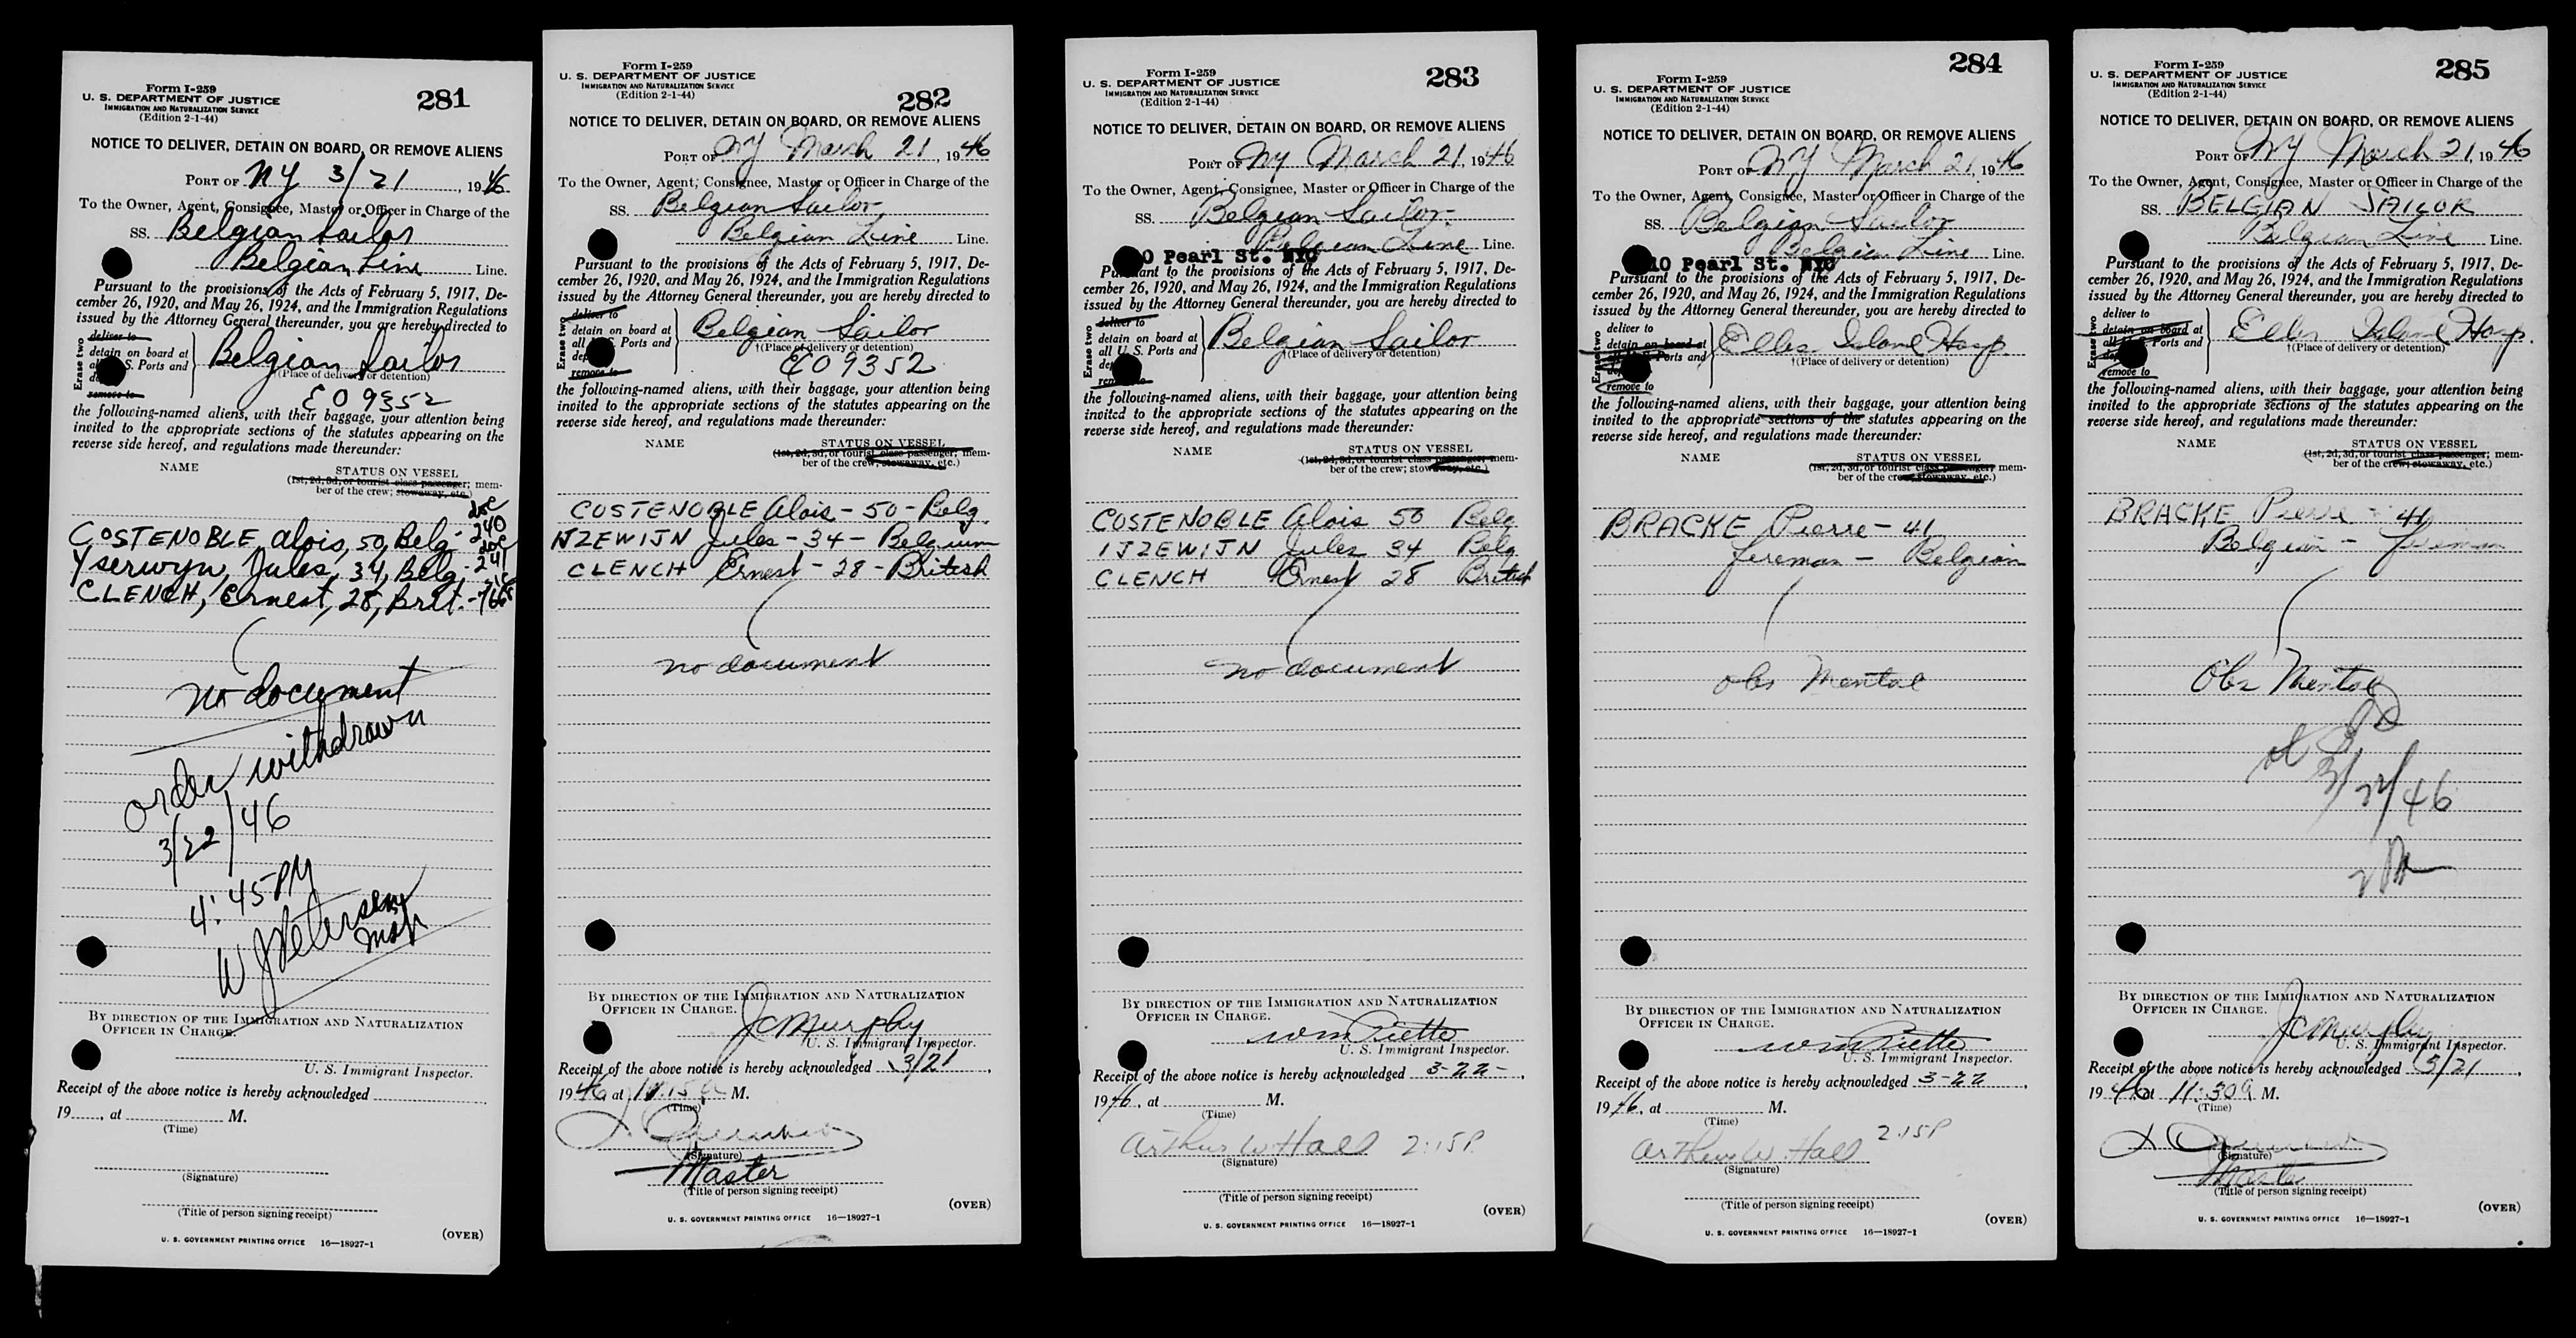 Form I-259
U. S. DEPARTMENT OF JUSTICE
IMMIGRATION AND NATURALIZATION SERVICE
(Edition 2-1-44)
281
NOTICE TO DELIVER, DETAIN ON BOARD, OR REMOVE ALIENS
PORT OF NY 3/21, 1946
To the Owner, Agent, Consignee, Master or Officer in Charge of the
SS. Belgian Sailor
Belgian Line Line.
Pursuant to the provisions of the Acts of February 5, 1917, De-
cember 26, 1920, and May 26, 1924, and the Immigration Regulations
issued by the Attorney General thereunder, you are hereby directed to
Erase two
deliver to
detain on board at
S. Ports and
remove to
Belgian Sailor
†(Place of delivery or detention)
EO 9352
the following-named aliens, with their baggage, your attention being
invited to the appropriate sections of the statutes appearing on the
reverse side hereof, and regulations made thereunder:
NAME STATUS ON VESSEL
(1st, 2d, 3d, or tourist class passenger; mem-
ber of the crew; stowaway, etc.)
COSTENOBLE Alois, 50, Belg - doc 240
Yserwyn, Jules, 34, Belg, - doc 241
CLENCH, Ernest, 28, Brit. -
no document
order withdrawn
3/22/46
4:45 PM
W J Petersen
BY DIRECTION OF THE IMMIGRATION AND NATURALIZATION
OFFICER IN CHARGE.
U. S. Immigrant Inspector.
Receipt of the above notice is hereby acknowledged
19, at M.
(Time)
(Signature)
(Title of person signing receipt)
(OVER)
U. S. GOVERNMENT PRINTING OFFICE 16—18927-1
Form I-259
U. S. DEPARTMENT OF JUSTICE
IMMIGRATION AND NATURALIZATION SERVICE
(Edition 2-1-44)
282
NOTICE TO DELIVER, DETAIN ON BOARD, OR REMOVE ALIENS
PORT OF NY March 21, 1946
To the Owner, Agent, Consignee, Master or Officer in Charge of the
SS. Belgian Sailor
Belgian Line Line.
Pursuant to the provisions of the Acts of February 5, 1917, De-
cember 26, 1920, and May 26, 1924, and the Immigration Regulations
issued by the Attorney General thereunder, you are hereby directed to
Erase two
deliver to
detain on board at
all S. Ports and
remove to
Belgian Sailor
†(Place of delivery or detention)
EO 9352
the following-named aliens, with their baggage, your attention being
invited to the appropriate sections of the statutes appearing on the
reverse side hereof, and regulations made thereunder:
NAME STATUS ON VESSEL
(1st, 2d, 3d, or tourist class passenger; mem-
ber of the crew; stowaway, etc.)
COSTENOBLE Alois - 50 - Belg.
IJZEWIJN Jules - 34 - Belgium
CLENCH Ernest - 28 - British
no document
BY DIRECTION OF THE IMMIGRATION AND NATURALIZATION
OFFICER IN CHARGE.
JC Murphy
U. S. Immigrant Inspector.
Receipt of the above notice is hereby acknowledged 3/21,
1946 at 11:15 a M.
(Time)
(Signature)
Master
(Title of person signing receipt)
(OVER)
U. S. GOVERNMENT PRINTING OFFICE 16—18927-1
Form I-259
U. S. DEPARTMENT OF JUSTICE
IMMIGRATION AND NATURALIZATION SERVICE
(Edition 2-1-44)
283
NOTICE TO DELIVER, DETAIN ON BOARD, OR REMOVE ALIENS
PORT OF NY March 21, 1946
To the Owner, Agent, Consignee, Master or Officer in Charge of the
SS. Belgian Sailor
Belgian Line Line.
0 Pearl St. NYC
Pursuant to the provisions of the Acts of February 5, 1917, De-
cember 26, 1920, and May 26, 1924, and the Immigration Regulations
issued by the Attorney General thereunder, you are hereby directed to
Erase two
deliver to
detain on board at
all U. S. Ports and
Belgian Sailor
†(Place of delivery or detention)
the following-named aliens, with their baggage, your attention being
invited to the appropriate sections of the statutes appearing on the
reverse side hereof, and regulations made thereunder:
NAME STATUS ON VESSEL
(1st, 2d, 3d, or tourist class passenger; mem-
ber of the crew; stowaway, etc.)
COSTENOBLE Alois 50 Belg
IJZEWIJN Jules 34 Belg
CLENCH Ernest 28 British
no document
BY DIRECTION OF THE IMMIGRATION AND NATURALIZATION
OFFICER IN CHARGE.
Wm Piette
U. S. Immigrant Inspector.
Receipt of the above notice is hereby acknowledged 3-22-,
1946, at M.
(Time)
Arthur W Hall 2:15P.
(Signature)
(Title of person signing receipt)
(OVER)
U. S. GOVERNMENT PRINTING OFFICE 16—18927-1
Form I-259
U. S. DEPARTMENT OF JUSTICE
IMMIGRATION AND NATURALIZATION SERVICE
(Edition 2-1-44)
284
NOTICE TO DELIVER, DETAIN ON BOARD, OR REMOVE ALIENS
PORT OF NY March 21, 1946
To the Owner, Agent, Consignee, Master or Officer in Charge of the
SS. Belgian Sailor
Belgian Line Line.
10 Pearl St. NYC
Pursuant to the provisions of the Acts of February 5, 1917, De-
cember 26, 1920, and May 26, 1924, and the Immigration Regulations
issued by the Attorney General thereunder, you are hereby directed to
Erase two
deliver to
detain on board at
Ports and
remove to
Ellis Island Hosp.
†(Place of delivery or detention)
the following-named aliens, with their baggage, your attention being
invited to the appropriate sections of the statutes appearing on the
reverse side hereof, and regulations made thereunder:
NAME STATUS ON VESSEL
(1st, 2d, 3d, or tourist class passenger; mem-
ber of the crew; stowaway, etc.)
BRACKE Pierre - 41
fireman - Belgian
obs Mental
BY DIRECTION OF THE IMMIGRATION AND NATURALIZATION
OFFICER IN CHARGE.
Wm Piette
U. S. Immigrant Inspector.
Receipt of the above notice is hereby acknowledged 3-22,
1946, at M.
(Time)
Arthur W. Hall 2:15P
(Signature)
(Title of person signing receipt)
(OVER)
U. S. GOVERNMENT PRINTING OFFICE 16—18927-1
Form I-259
U. S. DEPARTMENT OF JUSTICE
IMMIGRATION AND NATURALIZATION SERVICE
(Edition 2-1-44)
285
NOTICE TO DELIVER, DETAIN ON BOARD, OR REMOVE ALIENS
PORT OF NY March 21, 1946
To the Owner, Agent, Consignee, Master or Officer in Charge of the
SS. BELGIAN SAILOR
Belgian Line Line.
Pursuant to the provisions of the Acts of February 5, 1917, De-
cember 26, 1920, and May 26, 1924, and the Immigration Regulations
issued by the Attorney General thereunder, you are hereby directed to
Erase two
deliver to
detain on board at
all S. Ports and
remove to
Ellis Island Hosp.
†(Place of delivery or detention)
the following-named aliens, with their baggage, your attention being
invited to the appropriate sections of the statutes appearing on the
reverse side hereof, and regulations made thereunder:
NAME STATUS ON VESSEL
(1st, 2d, 3d, or tourist class passenger; mem-
ber of the crew; stowaway, etc.)
BRACKE Pierre - 41
Belgian - fireman
Obs Mental
BY DIRECTION OF THE IMMIGRATION AND NATURALIZATION
OFFICER IN CHARGE.
JC Murphy
U. S. Immigrant Inspector.
Receipt of the above notice is hereby acknowledged 3/21,
1946 at 11:30a M.
(Time)
(Signature)
Master
(Title of person signing receipt)
(OVER)
U. S. GOVERNMENT PRINTING OFFICE 16—18927-1